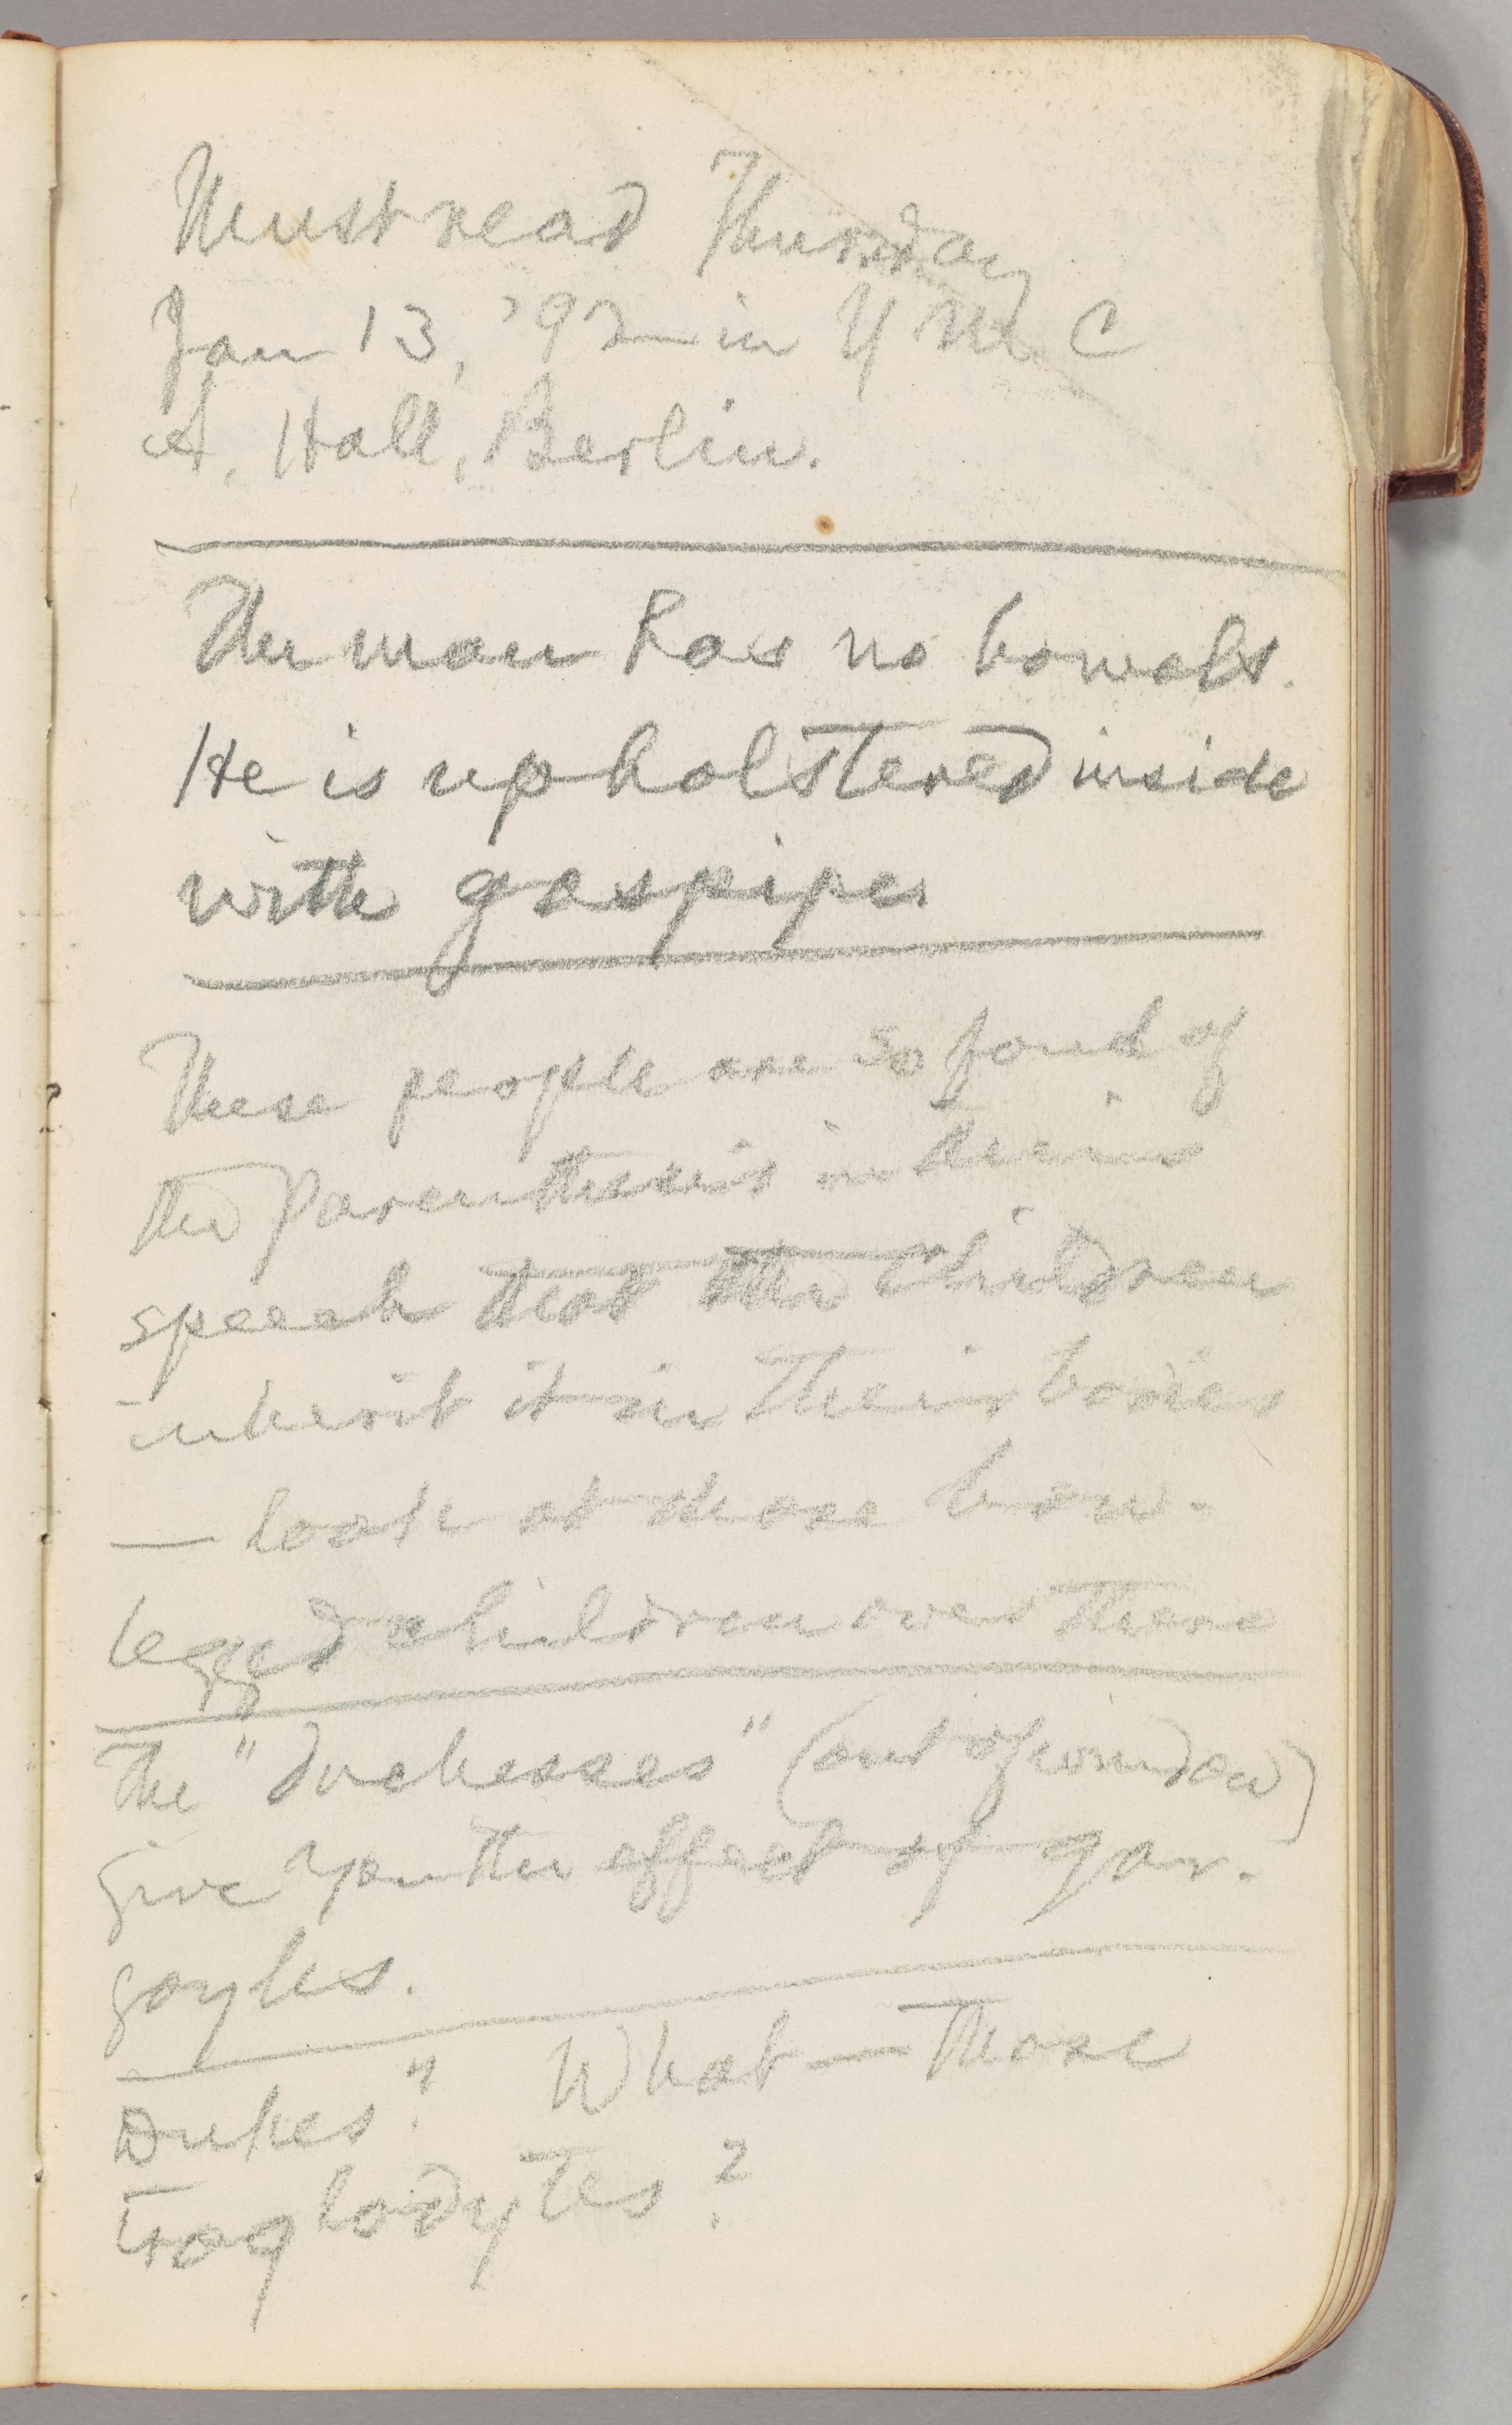 Must read Thursday
Jan 13, '92 in Y M C
A, Hall, Berlin.
The man has no bowels.
He is upholstered inside
with gaspipes
These people are so fond of
the Parenthesis in their
speech that the children
inherit it in their bodies
— look at those bow-
legged children over there
The "duchesses" (out of window)
give you the effect of gar-
goyles.
Dukes". What — those
troglodytes?